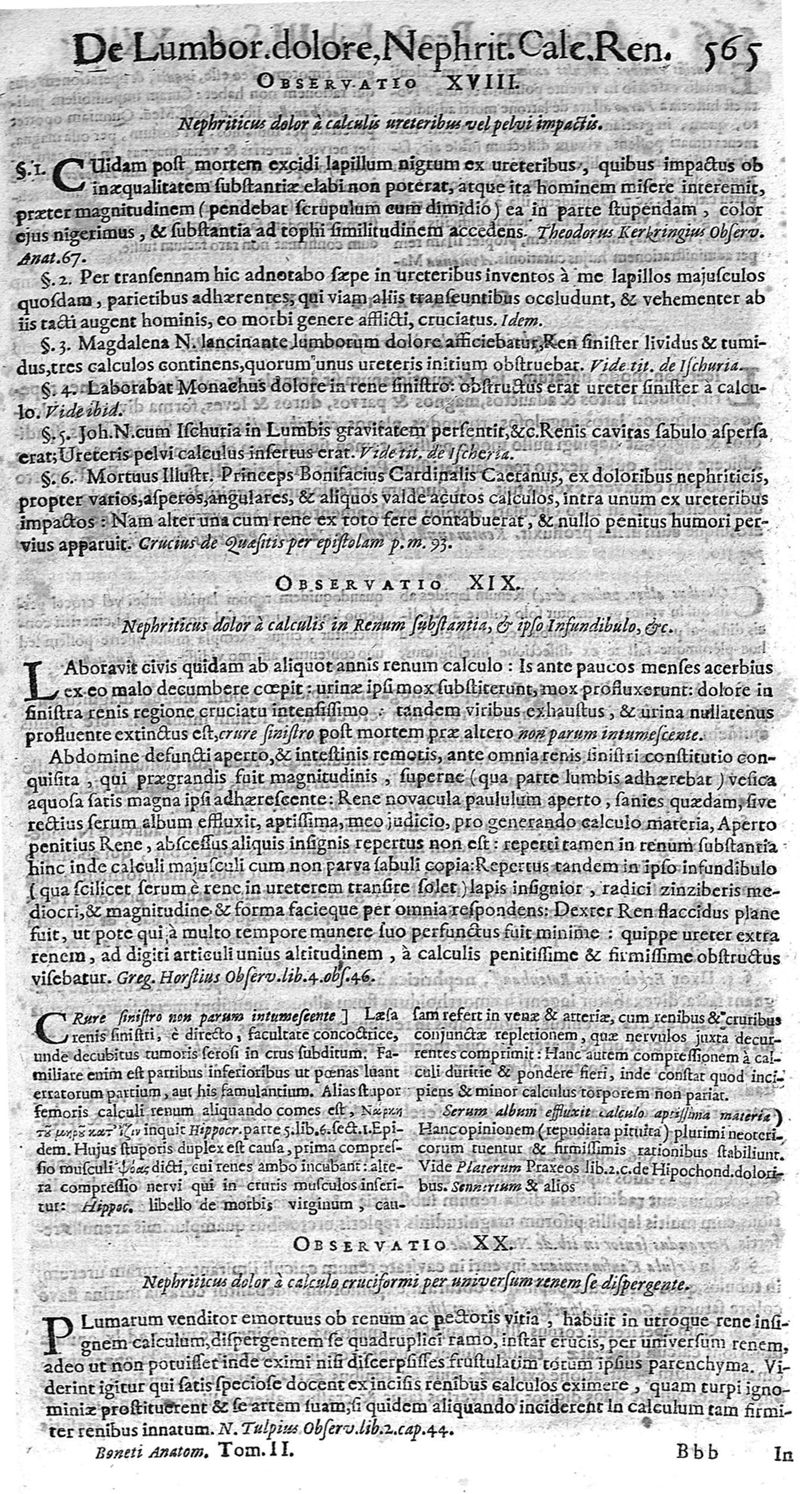 De Lumbor.dolore, Nephrit. Calc. Ren. 565
OBSERVATIO XVIII.
Nephriticus dolor à calculis ureteribus vel pelvi impactis.
§. 1. CUidam post mortem excidi lapillum nigrum ex ureteribus, quibus impactus ob
inæqualitatem substantiæ elabi non poterat, atque ita hominem misere interemit,
præter magnitudinem (pendebat scrupulum cum dimidio) ea in parte stupendam, color
ejus nigerimus, & substantia ad tophi similitudinem accedens. Theodorus Kerkringius Observ.
Anat. 67.
§. 2. Per transennam hic adnotabo sæpe in ureteribus inventos à me lapillos majusculos
quosdam, parietibus adhærentes, qui viam aliis transeuntibus occludunt, & vehementer ab
iis tacti augent hominis, eo morbi genere afflicti, cruciatus. Idem.
§. 3. Magdalena N. lancinante lumborum dolore afficiebatur, Ren sinister lividus & tumi-
dus, tres calculos continens, quorum unus ureteris initium obstruebat. Vide tit. de Ischuria.
§. 4. Laborabat Monachus dolore in rene sinistro: obstructus erat ureter sinister à calcu-
lo. Vide ibid.
§. 5. Joh. N. cum Ischuria in Lumbis gravitatem persentit, &c. Renis cavitas sabulo aspersa
erat; Ureteris pelvi calculus insertus erat. Vide tit. de Ischeria.
§. 6. Mortuus Illustr. Princeps Bonifacius Cardinalis Caetanus, ex doloribus nephriticis,
propter varios, asperos, angulares, & aliquos valde acutos calculos, intra unum ex ureteribus
impactos: Nam alter una cum rene ex toto fere contabuerat, & nullo penitus humori per-
vius apparuit. Crucius de Quæsitis per epistolam p. m. 93.
OBSERVATIO XIX.
Nephriticus dolor à calculis in Renum substantia, & ipso Infundibulo, &c.
LAboravit civis quidam ab aliquot annis renum calculo: Is ante paucos menses acerbius
ex eo malo decumbere cœpit: urinæ ipsi mox substiterunt, mox profluxerunt: dolore in
sinistra renis regione cruciatu intensissimo: tandem viribus exhaustus, & urina nullatenus
profluente extinctus est, crure sinistro post mortem præ altero non parum intumescente.
Abdomine defuncti aperto, & intestinis remotis, ante omnia renis sinistri constitutio con-
quisita, qui prægrandis fuit magnitudinis, superne (qua parte lumbis adhærebat) vesica
aquosa satis magna ipsi adhærescente: Rene novacula paululum aperto, sanies quædam, sive
rectius serum album effluxit, aptissima, meo judicio, pro generando calculo materia, Aperto
penitius Rene, abscessus aliquis insignis repertus non est: reperti tamen in renum substantia
hinc inde calculi majusculi cum non parva sabuli copia: Repertus tandem in ipso infundibulo
(qua scilicet serum è rene in ureterem transire solet) lapis insignior, radici zinziberis me-
diocri, & magnitudine & forma facieque per omnia respondens: Dexter Ren flaccidus plane
fuit, ut pote qui à multo tempore munere suo perfunctus fuit minime: quippe ureter extra
renem, ad digiti articuli unius altitudinem, à calculo penitissime & firmissime obstructus
visebatur. Greg. Horstius Observ. lib. 4. obs. 46.
CRure sinistro non parum intumescente] Læsa
renis sinistri, è directo, facultate concoctrice,
unde decubitus tumoris serosi in crus subditum. Fa-
miliare enim est partibus inferioribus ut pœnas luant
erratorum partium, aut his famulantium. Alias stupor
femoris calculi renum aliquando comes est, Νάρκη
τοῦ μηροῦ κατ' ἴξιν inquit Hippocr. parte 5. lib. 6. sect. 1. Epi-
dem. Hujus stuporis duplex est causa, prima compres-
sio musculi ψόας dicti, cui renes ambo incubant: alte-
ra compressio nervi qui in cruris musculos inseri-
tur: Hippoc. libello de morbis virginum, cau-
sam refert in venæ & arteriæ, cum renibus & cruribus
conjunctæ repletionem, quæ nervulos juxta decur-
rentes comprimit: Hanc autem compressionem à cal-
culi duritie & pondere fieri, inde constat quod inci-
piens & minor calculus torporem non pariat.
Serum album effluxit calculo aptissima materia)
Hanc opinionem (repudiata pituita) plurimi neoteri-
corum tuentur & firmissimis rationibus stabiliunt.
Vide Platerum Praxeos lib. 2. c. de Hipochond. dolori-
bus. Sennertum & alios
OBSERVATIO XX.
Nephriticus dolor à calculo cruciformi per universum renem se dispergente.
PLumarum venditor emortuus ob renum ac pectoris vitia, habuit in utroque rene insi-
gnem calculum, dispergentem se quadruplici ramo, instar crucis, per universum renem,
adeo ut non potuisset inde eximi nisi discerpsisses frustulatim totum ipsius parenchyma. Vi-
derint igitur qui satis speciose docent ex incisis renibus calculos eximere, quam turpi igno-
miniæ prostituerent & se artem suam, si quidem aliquando inciderent in calculum tam firmi-
ter renibus innatum. N. Tulpius Observ. lib. 2. cap. 44.
Boneti Anatom. Tom. II. Bbb In